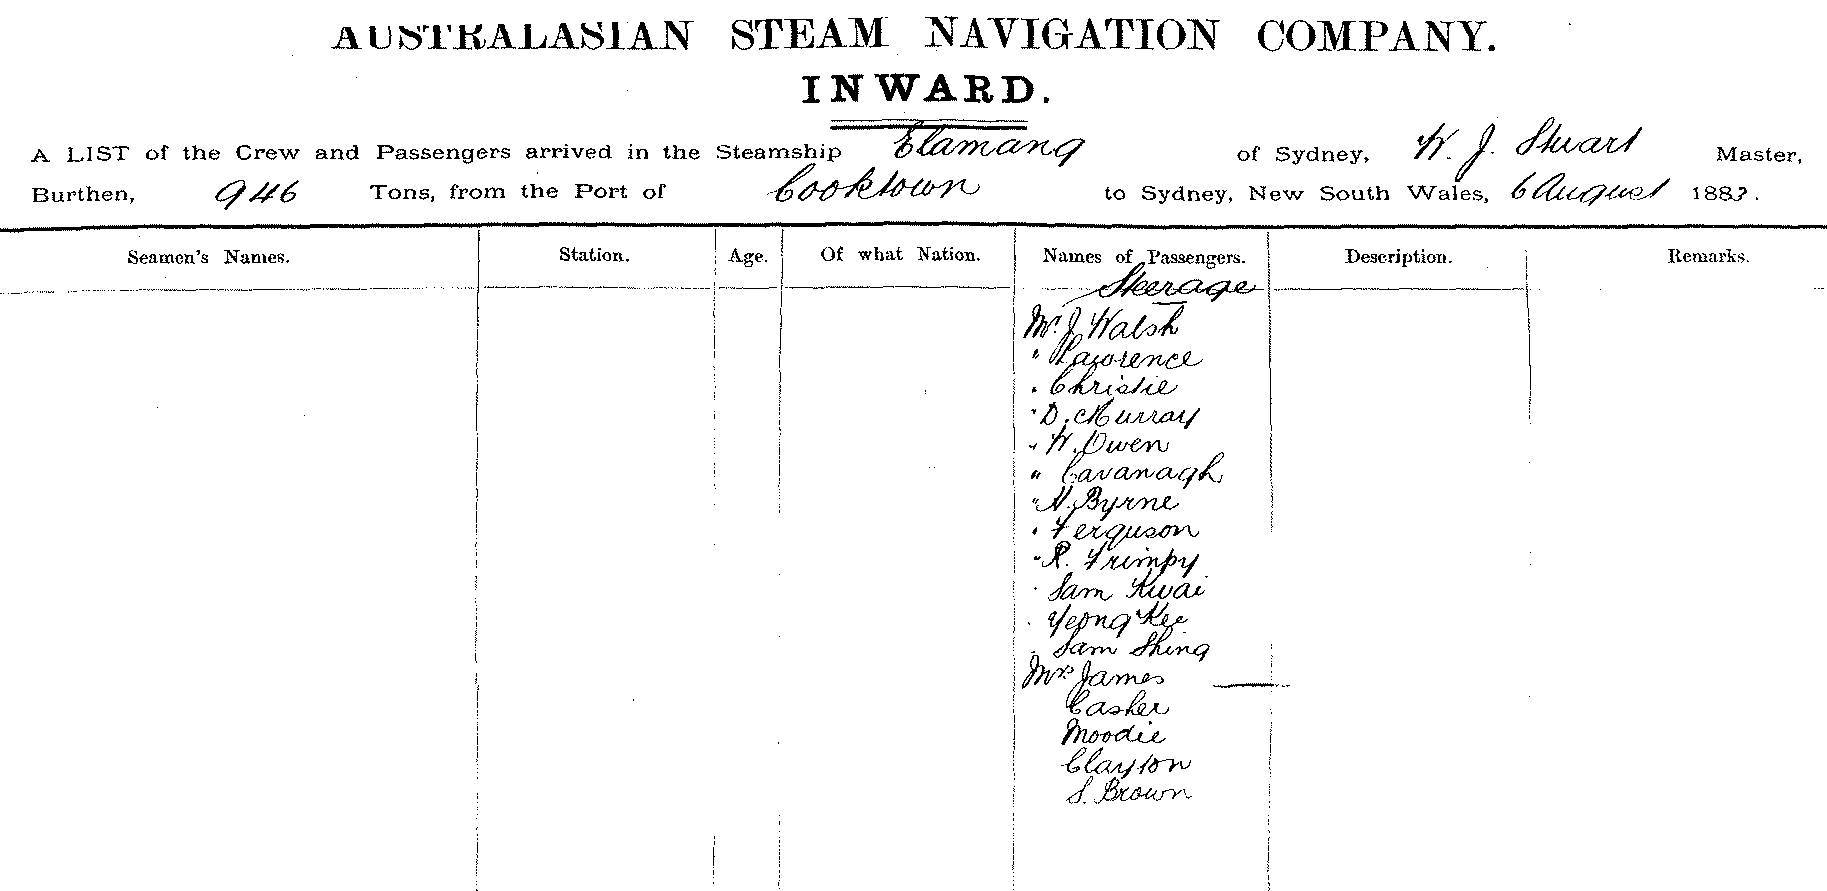 AUSTRALASIAN STEAM NAVIGATION COMPANY.
INWARD.
A LIST of the Crew and Passengers arrived in the Steamship Elamang of Sydney, W. J. Stuart Master,
Burthen, 946 Tons, from the Port of Cooktown to Sydney, New South Wales, 6 August 1883.
Seamen's Names. Station. Age. Of what Nation. Names of Passengers. Description. Remarks.
Steerage
Mr. J. Walsh
" Lawrence
" Christie
" D. Murray
" W. Owen
" Cavanagh
" N. Byrne
" Ferguson
" R. Frimpy
" Sam Kwai
" Yeong Kee
" Sam Shing
Mrs James
Casher
Moodie
Clayton
S. Brown